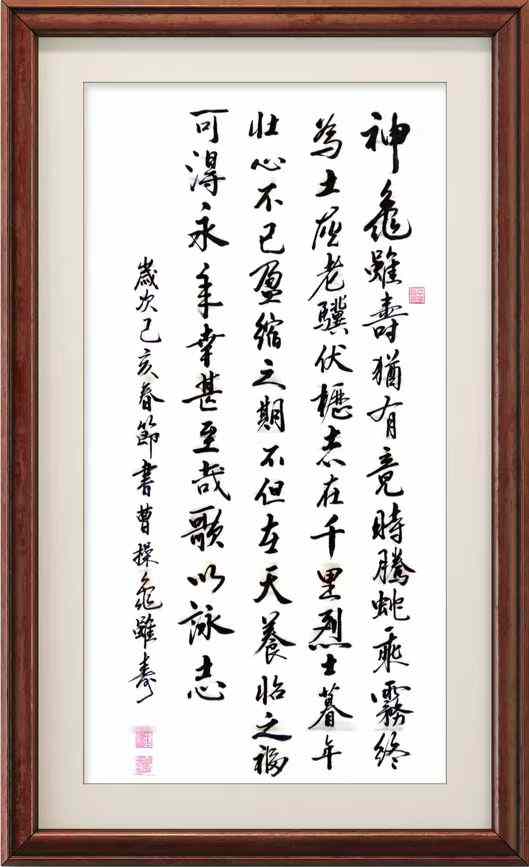 神龜雖壽猶有竟時騰蛇乘霧終
為土灰老驥伏櫪志在千里烈士暮年
壯心不已盈縮之期不但在天養怡之福
可得永年幸甚至哉歌以詠志
歲次己亥春節書曹操龜雖壽